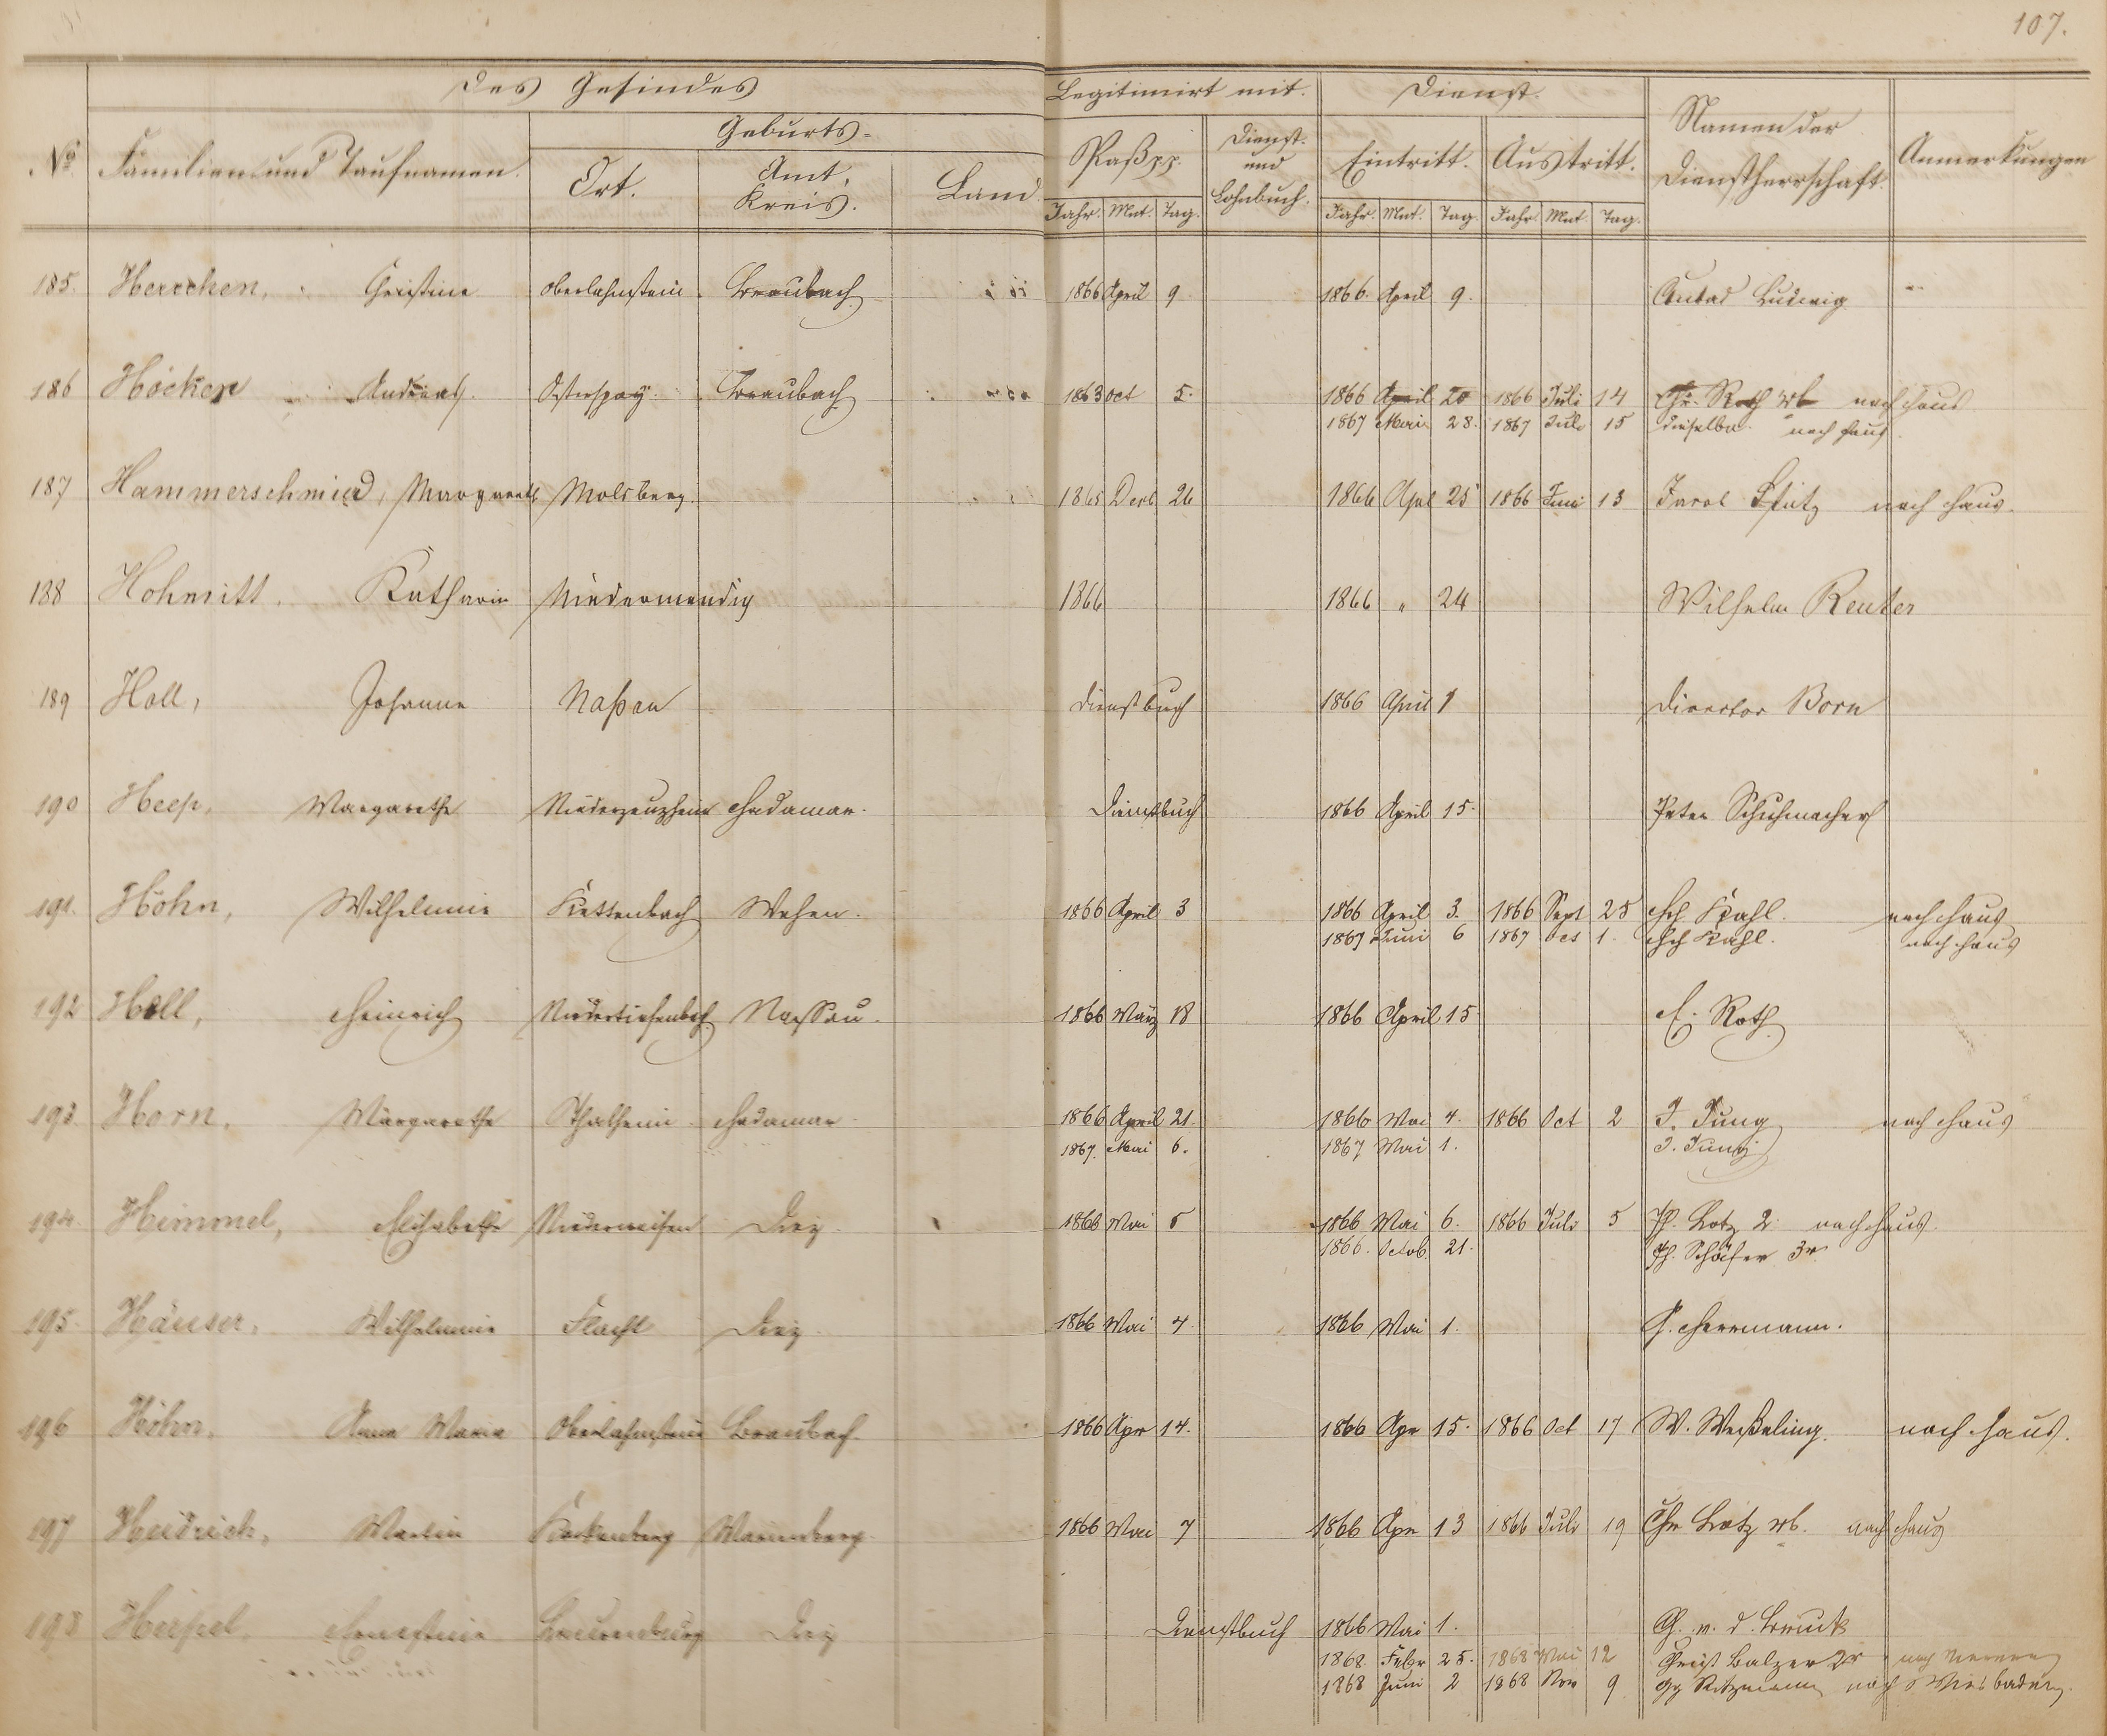 107.
Des Gesindes Legitimirt mit. Dienst.
Geburts-
Nº Familien- und Taufnamen. Ort. Amt, Kreis. Land. Paß pp. Dienst- und Lohnbuch. Eintritt. Austritt. Namen der Dienstherrschaft. Anmerkungen
Jahr. Mnt. Tag. Jahr. Mnt. Tag. Jahr. Mnt. Tag.
185. Herrchen, Christine Oberlahnstein. Braubach 1866 April 9 1866. April 9. Ludwig
186 Höcker Andreas. Osterspay. Braubach 1863 Oct 5. 1866 April 20 1866 Juli 14 Chr. Roth wb nach Haus
1867 Mai 28. 1867 Juli 15 dieselbe nach Haus.
187 Hammerschmied, Margareth Molsberg. 1865 Decb 26 1866 Apl 25 1866 Juni 13 Jacob Stutz nach Haus.
188 Hohmitt. Katharin Niedermendig 1866 1866 " 24 Wilhelm Reuter
189 Holl, Johanna Naßau Dienstbuch 1866 April 1 Director Born
190 Heep, Margarethe Niederzeuzheim Hadamar. Dienstbuch 1866 April 15. Peter Schuhmacher
191. Höhn, Wilhelmine Kettenbach Wehen. 1866 April 3 1866 April 3. 1866 Sept 25 Hch Kahl. nach Haus
1867 Juni 6 1867 Oct 1. Hch Kahl. nach Haus
192 Holl, Heinrich Niedertiefenbach Nassau. 1866 März 18 1866 April 15 E. Roth
193. Horn, Margarethe Thalheim Hadamar 1866 April 21. 1866 Mai 4. 1866 Oct 2 J. Jung nach Haus
1867. Mai 6. 1867 Mai 1. J. Jung
194. Heimmel, Elisabethe Niederneisen Diez. 1866 Mai 5 1866 Mai 6. 1866 Juli 5 Ph. Lotz 2. nach Haus.
1866. Octob. 21. Ph. Schäfer 3r
195. Häuser, Wilhelmine Flacht Diez. 1866 Mai 4. 1866 Mai 1. Herrmann.
196 Höhn, Anna Maria Oberlahnstein Braubach. 1866 Apr 14. 1866 Apr 15. 1866 Oct 17 W. Weßeling. nach Haus.
197 Heidrich, Martin Marienberg. 1866 Mai 7 1866 Apr 13 1866 Juli 19 Chr Lotz wb. nach Haus
198 Heipel, Ernestine Diez Dienstbuch 1866 Mai 1. v. d.
1868. Febr 25. 1868 Mai 12 Christ Balzer 2r nach
1868 Juni 2 1868 Nov 9 nach Wiesbaden.